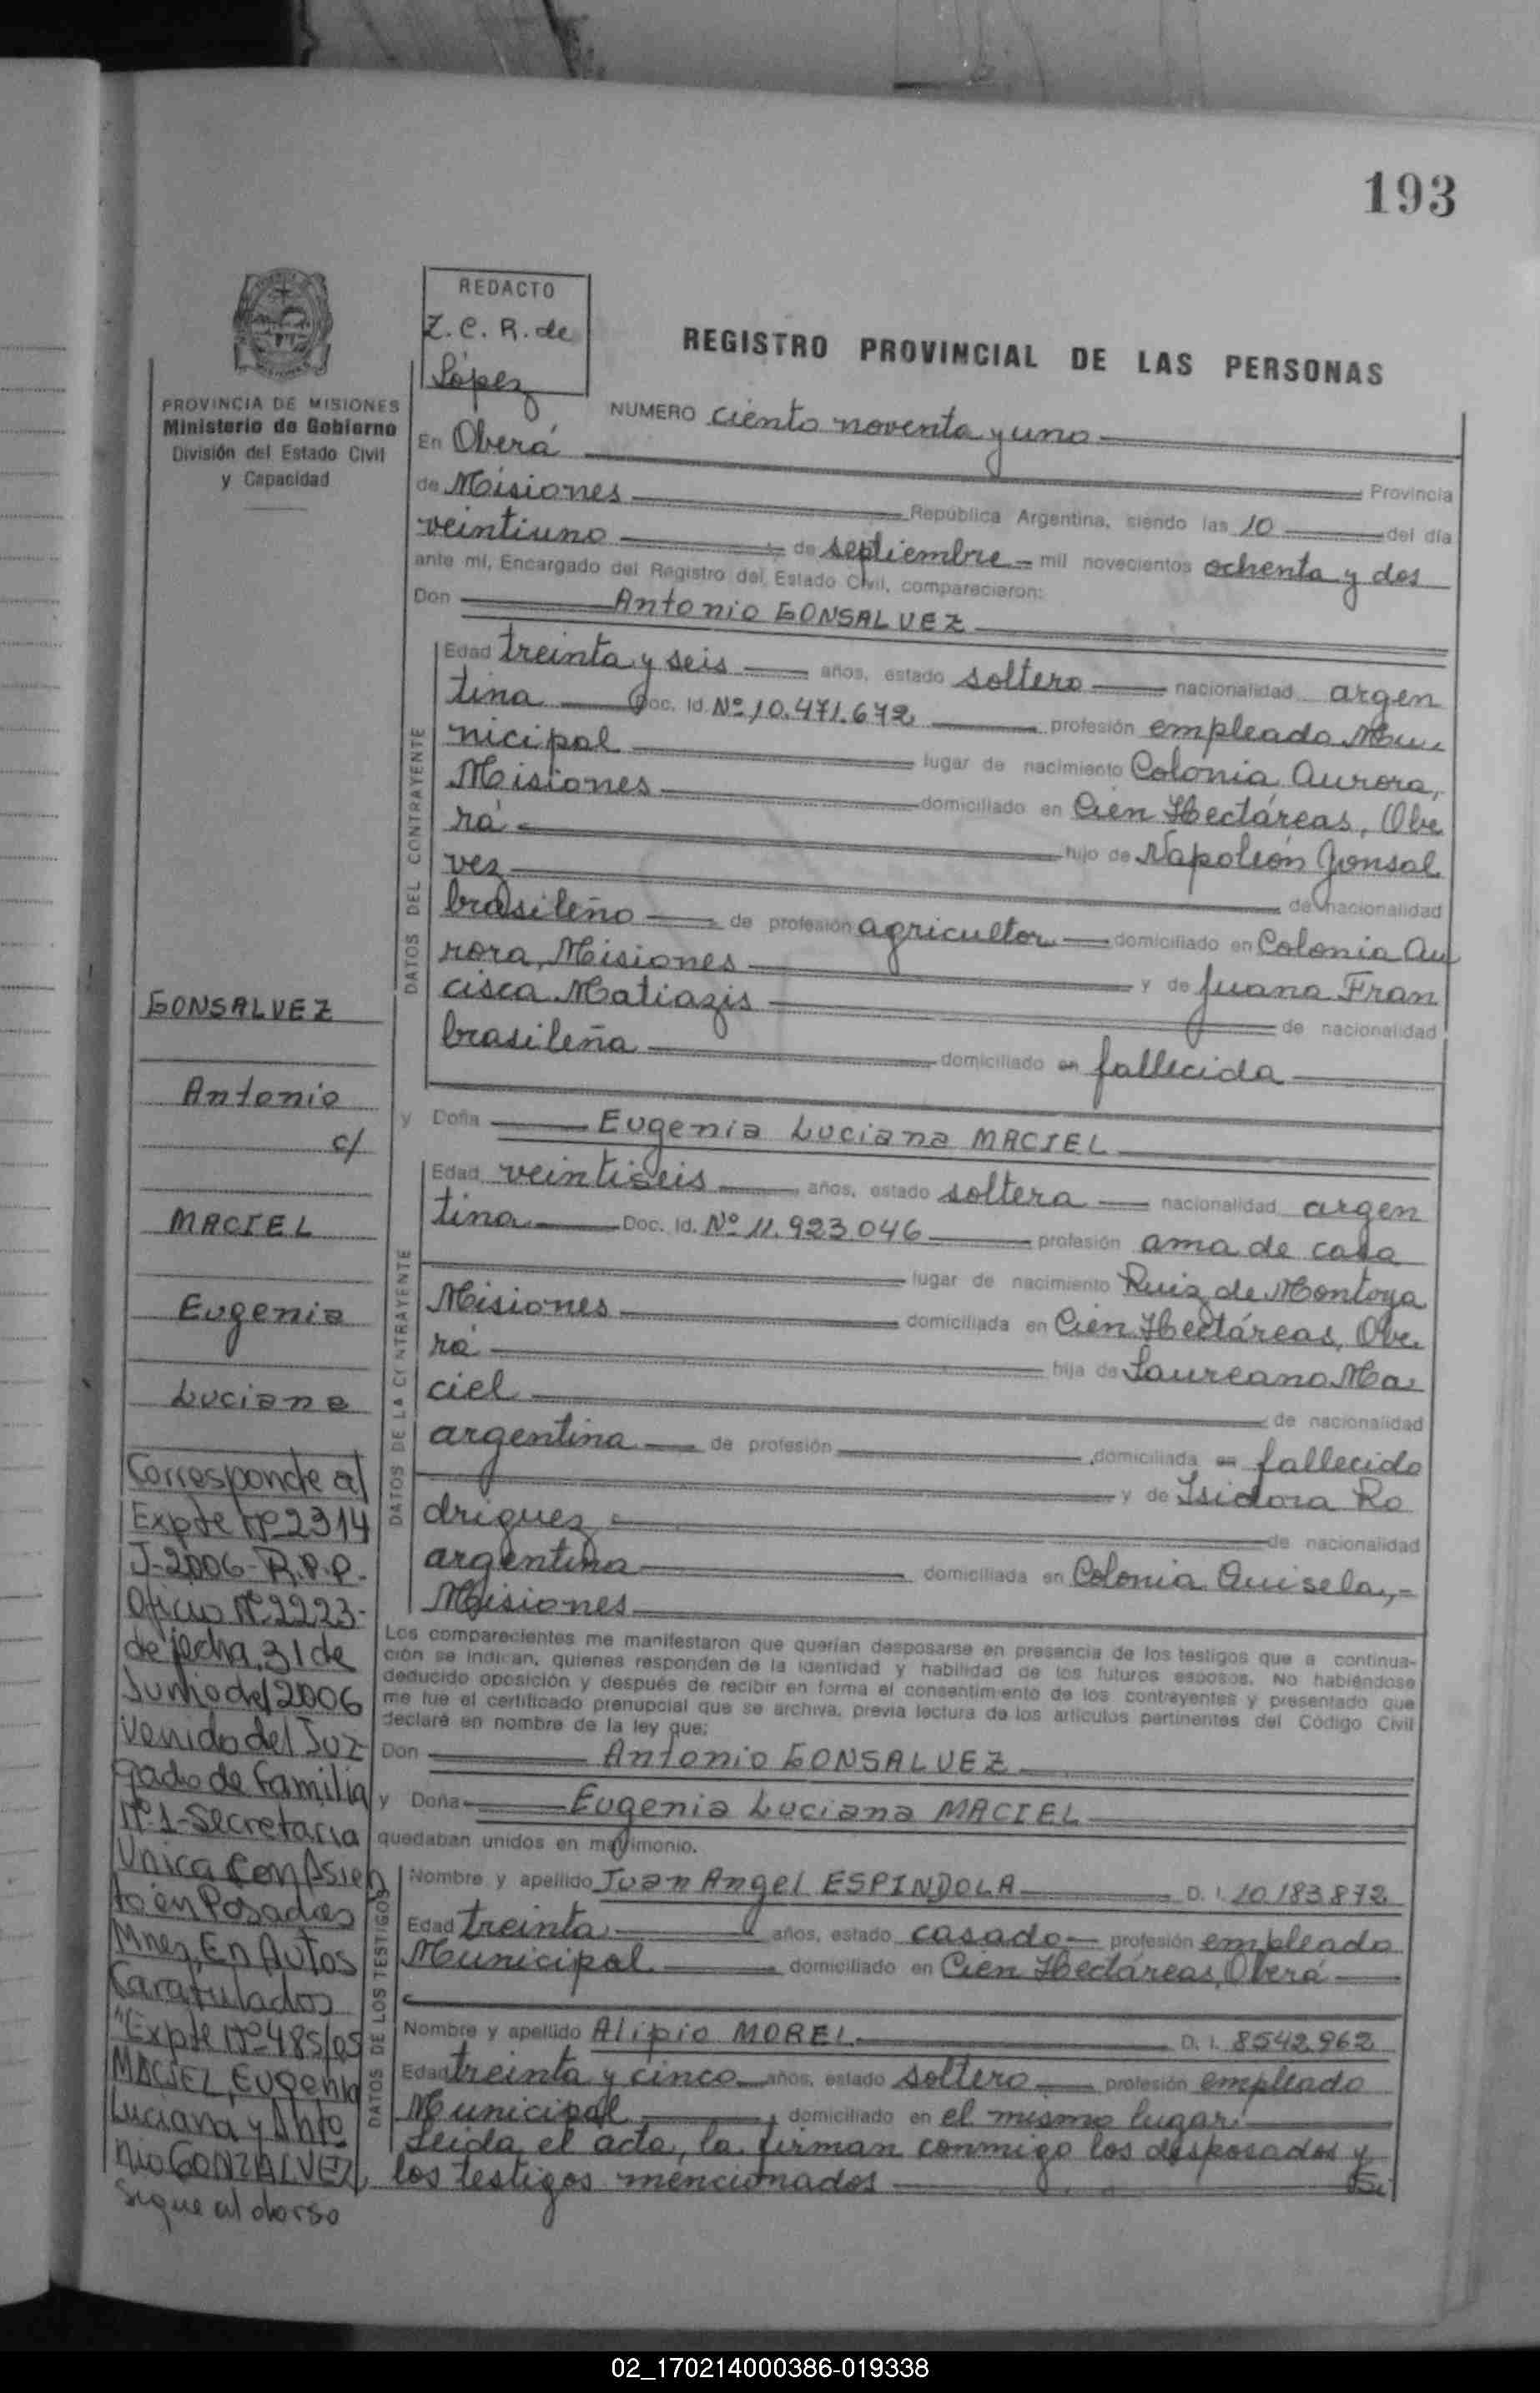 193
REDACTO
Z. C. R. de
López
REGISTRO PROVINCIAL DE LAS PERSONAS
PROVINCIA DE MISIONES
Ministerio de Gobierno
División del Estado Civil
y Capacidad
NUMERO ciento noventa y uno
En Oberá
Provincia
de Misiones República Argentina, siendo las 10 del día
veintiuno de septiembre mil novecientos ochenta y dos
ante mí, Encargado del Registro del Estado Civil, comparecieron:
Don Antonio GONSALVEZ
DATOS DEL CONTRAYENTE
Edad treinta y seis años, estado soltero nacionalidad argen
tina Doc. Id. Nº 10.471.672 profesión empleado Mu
nicipal lugar de nacimiento Colonia Aurora,
Misiones domiciliado en Cien Hectáreas, Obe
rá hijo de Napoleón Gonsal
vez de nacionalidad
brasileño de profesión agricultor domiciliado en Colonia Au
rora, Misiones y de Juana Fran
cisca Matiazis de nacionalidad
brasileña domiciliado en fallecida
y Doña Eugenia Luciana MACIEL
DATOS DE LA CONTRAYENTE
Edad veintiseis años, estado soltera nacionalidad argen
tina Doc. Id. Nº 11.923.046 profesión ama de casa
lugar de nacimiento Ruiz de Montoya
Misiones domiciliada en Cien Hectáreas, Obe
rá hija de Laureano Ma
ciel de nacionalidad
argentina de profesión domiciliada en fallecido
y de Isidora Ro
driguez de nacionalidad
argentina domiciliada en Colonia Guisela,
Misiones
Los comparecientes me manifestaron que querían desposarse en presencia de los testigos que a continua-
ción se indican, quienes responden de la identidad y habilidad de los futuros esposos. No habiéndose
deducido oposición y después de recibir en forma el consentimiento de los contrayentes y presentado que
me fue el certificado prenupcial que se archiva, previa lectura de los artículos pertinentes del Código Civil
declaré en nombre de la ley que:
Don Antonio GONSALVEZ
y Doña Eugenia Luciana MACIEL
quedaban unidos en matrimonio.
DATOS DE LOS TESTIGOS
Nombre y apellido Juan Angel ESPINDOLA D. I. 10.183.872
Edad treinta años, estado casado profesión empleado
Municipal domiciliado en Cien Hectáreas, Oberá
Nombre y apellido Alipio MOREL D. I. 8542.962
Edad treinta y cinco años, estado soltero profesión empleado
Municipal domiciliado en el mismo lugar.
Leida el acta, la firman conmigo los desposados y
los testigos mencionados
GONSALVEZ
Antonio
c/
MACIEL
Eugenia
Luciana
Corresponde al
Expte Nº 2314
J-2006-R.P.P.
Oficio Nº 2223-
de fecha 31 de
Junio del 2006
venido del Juz
gado de Familia
Nº 1-Secretaria
Unica con Asien
to en Posadas
Mnes, En Autos
Caratulados
"Expte Nº 485/05
MACIEL, Eugenia
Luciana y Anto
nio GONZALVEZ
Sigue al dorso
02_170214000386-019338